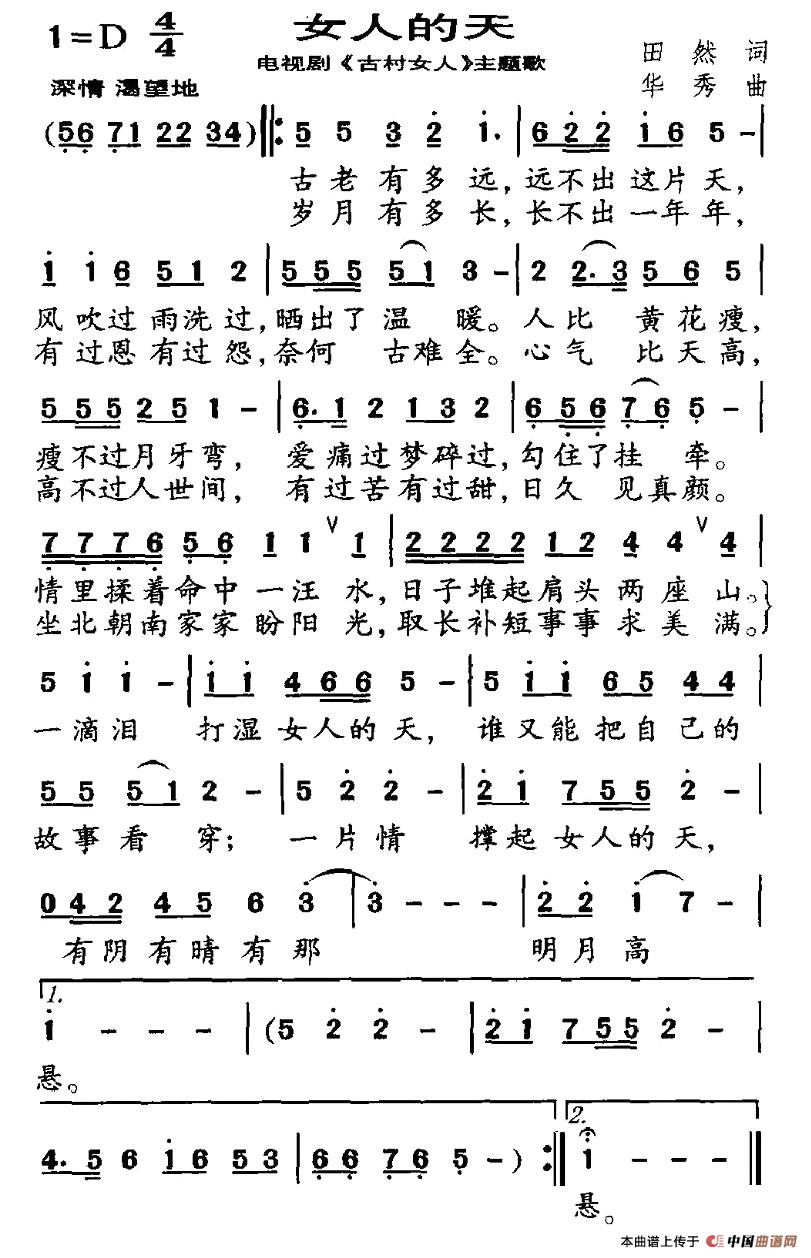 1=D 4/4 女人的天
电视剧《古村女人》主题歌
田然词
深情 渴望地
华秀曲
(56 71 22 34)‖: 5 5 3 2 1. | 6 2 2 1 6 5 - |
古老有多远,远不出这片天,
岁月有多长,长不出一年年,
1 1 6 5 1 2 | 5 5 5 5 1 3 - | 2 2. 3 5 6 5 |
风吹过雨洗过,晒出了温暖。人比黄花瘦,
有过恩有过怨,奈何古难全。心气比天高,
5 5 5 2 5 1 - | 6. 1 2 1 3 2 | 6 5 6 7 6 5 - |
瘦不过月牙弯,爱痛过梦碎过,勾住了挂牵。
高不过人世间,有过苦有过甜,日久见真颜。
7 7 7 6 5 6 1 1 ∨ 1 | 2 2 2 2 1 2 4 4 ∨ 4 |
情里揉着命中一汪水,日子堆起肩头两座山。
坐北朝南家家盼阳光,取长补短事事求美满。
5 1 1 - | 1 1 4 6 6 5 - | 5 1 1 6 5 4 4 |
一滴泪打湿女人的天,谁又能把自己的
5 5 5 1 2 - | 5 2 2 - | 2 1 7 5 5 2 - |
故事看穿;一片情撑起女人的天,
0 4 2 4 5 6 3 | 3 - - - | 2 2 1 7 - |
有阴有晴有那明月高
1.
1 - - - | (5 2 2 - | 2 1 7 5 5 2 - |
悬。
2.
4. 5 6 1 6 5 3 | 6 6 7 6 5 -) :‖ 1 - - - ‖
悬。
本曲谱上传于 中国曲谱网